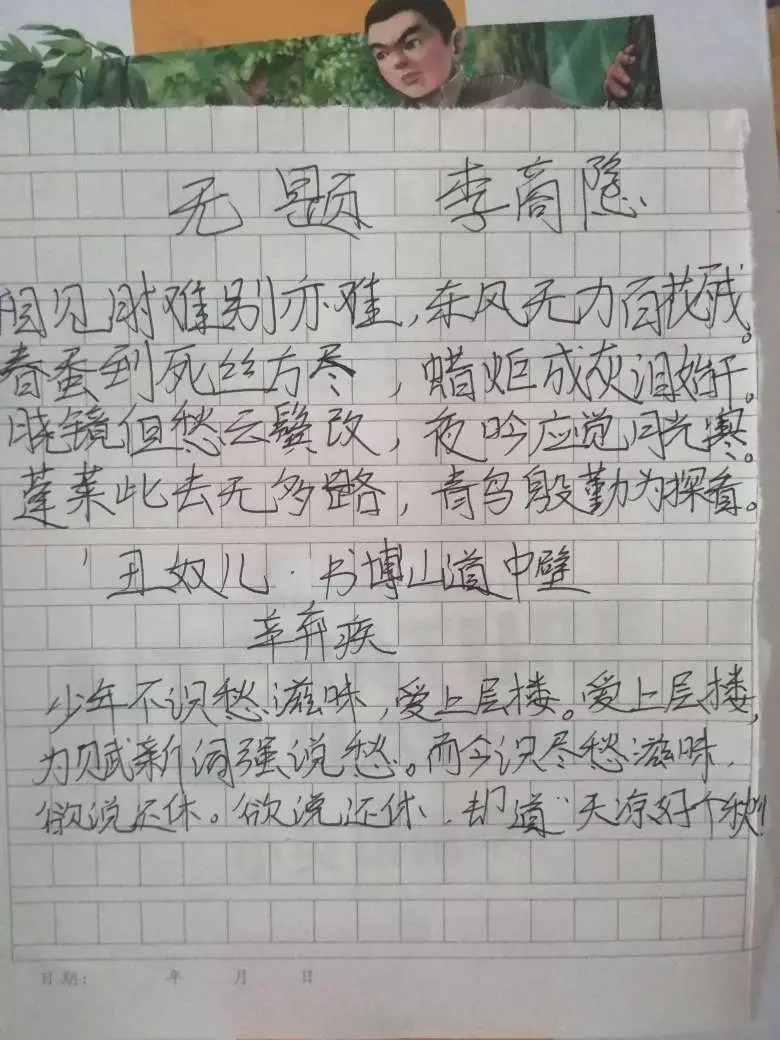 无题 李商隐
相见时难别亦难,东风无力百花残。
春蚕到死丝方尽,蜡炬成灰泪始干。
晓镜但愁云鬓改,夜吟应觉月光寒。
蓬莱此去无多路,青鸟殷勤为探看。
丑奴儿·书博山道中壁
辛弃疾
少年不识愁滋味,爱上层楼。爱上层楼,
为赋新词强说愁。而今识尽愁滋味,
欲说还休。欲说还休,却道“天凉好个秋”!
日期: 年 月 日